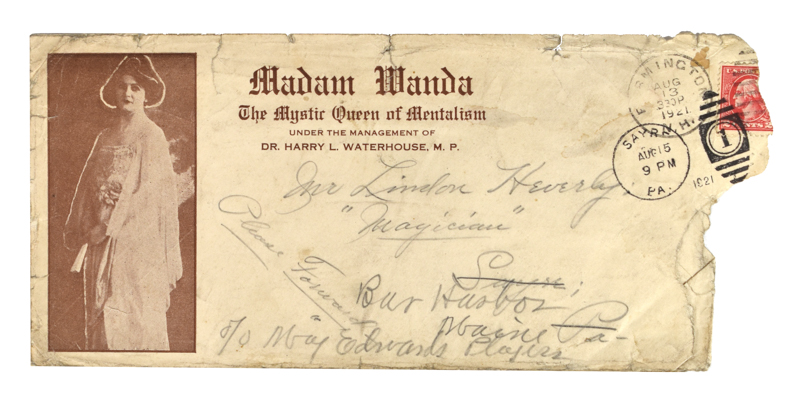 Madam Wanda
The Mystic Queen of Mentalism
UNDER THE MANAGEMENT OF
DR. HARRY L. WATERHOUSE, M. P.
AUG
13
330P
1921
N.H.
SAYRE
AUG 15
9 PM
PA.
1921
1
CENTS 2
Mr Lindon Heverly,
"Magician"
Please Forward
Sayre,
Bar Harbor
Maine Pa-
c/o May Edwards Players